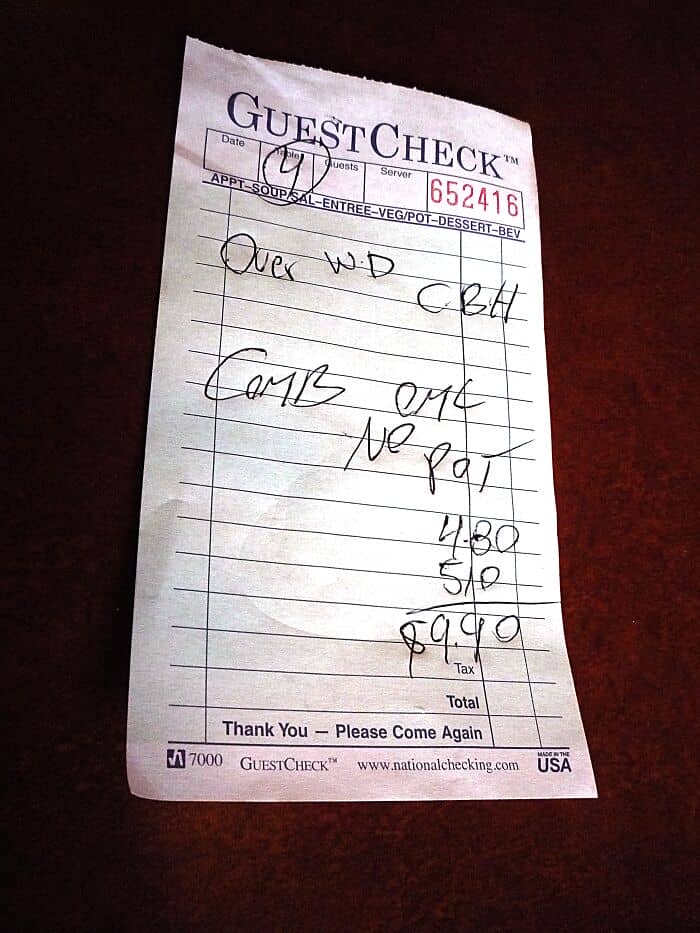 GUESTCHECK™
Date Table Guests Server
4 652416
APPT–SOUP/SAL–ENTREE–VEG/POT–DESSERT–BEV
Over W.D
CBH
COMB OML
NO POT
4.80
5/0
$9.90
Tax
Total
Thank You — Please Come Again
7000 GUESTCHECK™ www.nationalchecking.com MADE IN THE USA